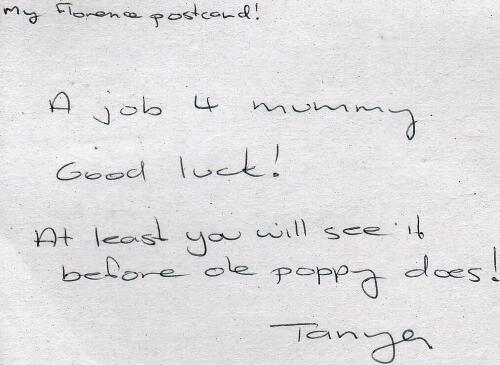 My Florence postcard!
A job 4 mummy
Good luck!
At least you will see it
before ole poppy does!
Tanya